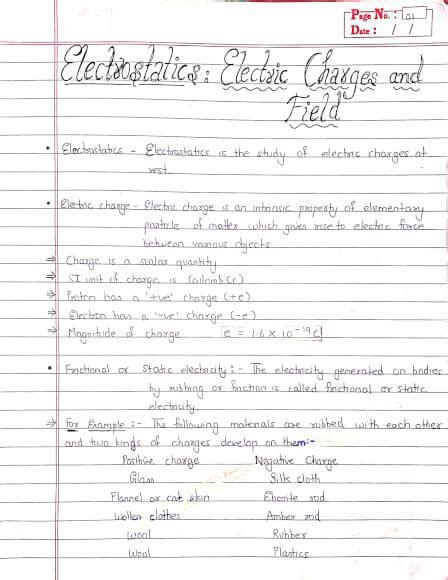 Page No. : 01
Date : / /
Electrostatics : Electric Charges and
Field
• Electrostatics - Electrostatics is the study of electric charges at
rest.
• Electric charge - Electric charge is an intrinsic property of elementary
particle of matter which gives rise to electric force
between various objects
⇒ Charge is a scalar quantity
⇒ SI unit of charge is Coulomb (c)
⇒ Proton has a '+ve' charge (+e)
⇒ Electron has a '-ve' charge (-e)
⇒ Magnitude of charge e = 1.6 × 10⁻¹⁹ C
• Frictional or Static electricity :- The electricity generated on bodies
by rubbing or friction is called frictional or static
electricity.
⇒ For Example :- The following materials are rubbed with each other
and two kinds of charges develop on them:-
Positive charge Negative Charge
Glass Silk cloth
Flannel or cat skin Ebonite rod
Wollen clothes Amber rod
Wool Rubber
Wool Plastics